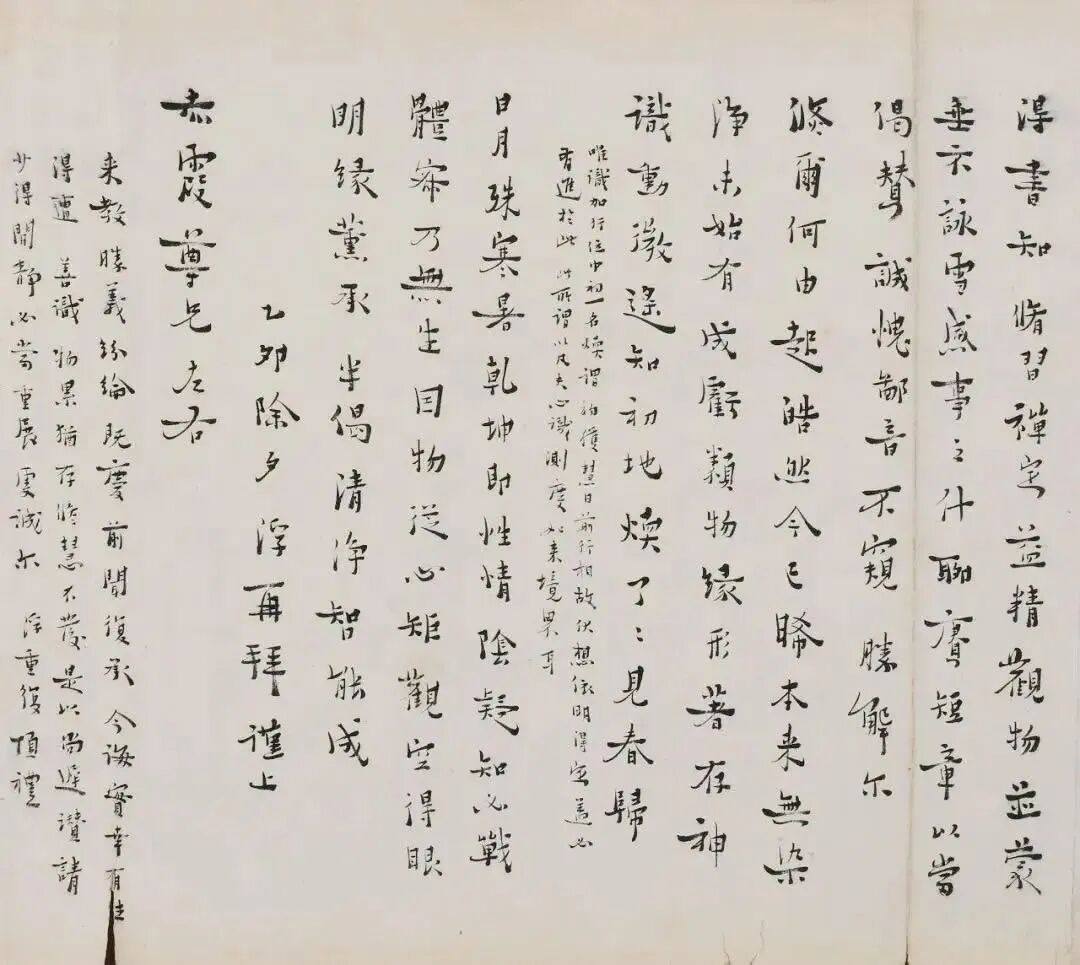 得書知脩習禪定益精觀物並蒙
垂示詠雪感事之什聊賡短章以當
偈贊誠愧鄙音不窺勝解尔
倏爾何由起皓然今已晞本来無染
淨未始有成虧類物緣形著存神
識動微遥知初地煗了〻見春歸
唯識加行位中初一名煗謂初獲慧日前行相故伏想依明得定蓋必
有進於此此所謂以凡夫心識測度如来境界耳
日月殊寒暑乾坤即性情陰疑知必戰
體寂乃無生因物從心矩觀空得眼
明緣薰承半偈清淨智能成
乙卯除夕浮再拜謹上
赤霞尊兄左右
来教勝義紛綸既慶前聞復承今誨實幸有生
得遭善識物累猶存脩慧不發是以尚遲讚請
少得閒静必當重展虔誠尔浮重復頂禮